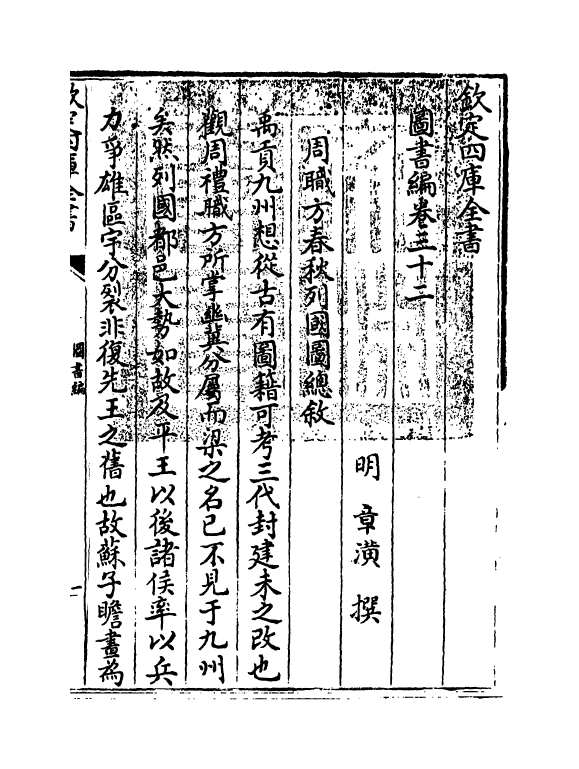 欽定四庫全書
圖書編卷三十二
明 章潢 撰
周職方春秋列國圖總敘
禹貢九州想從古有圖籍可考三代封建未之改也
觀周禮職方所掌幽冀分屬而梁之名已不見于九州
矣然列國都邑大勢如故及平王以後諸侯率以兵
力爭雄區宇分裂非復先王之舊也故蘇子瞻畫為
欽定四庫全書
圖書編
一